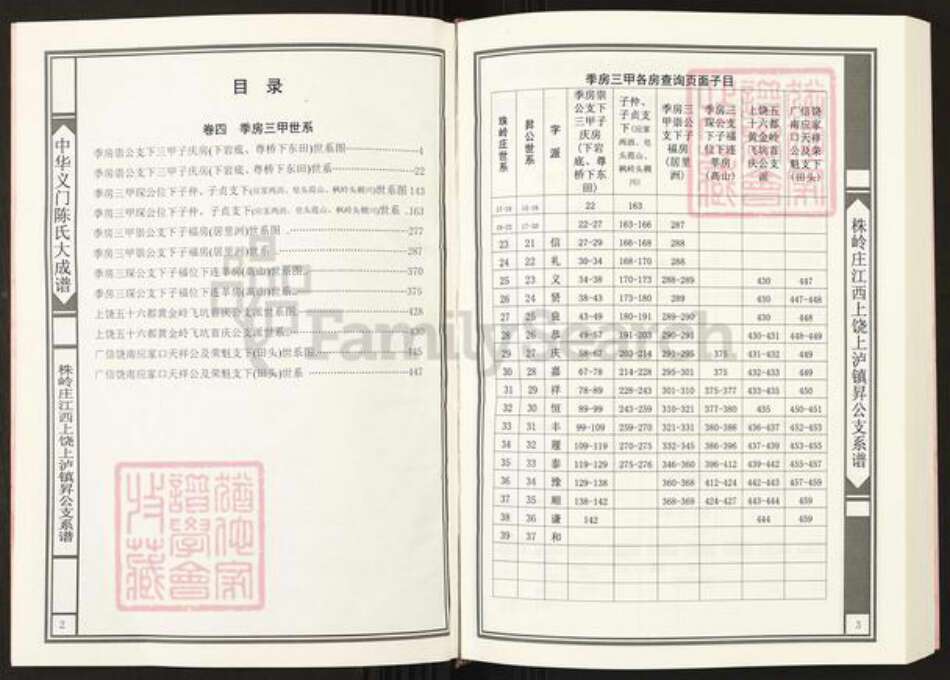 中华义门陈氏大成谱
株岭庄江西上饶上泸镇昇公支系谱
2
目 录
卷四 季房三甲世系
季房崇公支下三甲子庆房(下岩底、尊桥下东田)世系图 4
季房崇公支下三甲子庆房(下岩底、尊桥下东田)世系 22
季房三甲琛公位下子仲、子贞支下世系图 143
季房三甲琛公位下子仲、子贞支下世系 163
季房三甲崇公支下子福房(居里洲)世系图 277
季房三甲崇公支下子福房(居里洲)世系 287
季房三琛公支下子福位下连莘房(高山)世系图 370
季房三琛公支下子福位下连莘房(高山)世系 375
上饶五十六都黄金岭飞坑首庆公支派世系图 428
上饶五十六都黄金岭飞坑首庆公支派世系 430
广信饶南应家口天祥公及荣魁支下(田头)世系图 445
广信饶南应家口天祥公及荣魁支下(田头)世系 447
季房三甲各房查询页面子目
株岭庄世系 昇公世系 字派 季房崇公支下三甲子庆房(下岩底、尊桥下东田) 子仲、子贞支下 季房三甲崇公支下子福房(居里洲) 季房三琛公支下子福位下连莘房(高山) 上饶五十六都黄金岭飞坑首庆公支派 广信饶南应家口天祥公及荣魁支下(田头)
22 163
22-27 163-166 287
23 21 信 27-29 166-168 288
24 22 礼 30-34 168-170 288
25 23 义 34-38 170-173 288-289 430 447
26 24 贤 38-43 173-180 289 430 447-448
27 25 良 43-49 180-191 289-290 430 448
28 26 恭 49-57 191-203 290-291 430-431 448-449
29 27 庆 58-67 203-214 291-295 375 431-432 449
30 28 嘉 67-78 214-228 295-301 375 432-433 449
31 29 祥 78-89 228-243 301-310 375-377 433-435 450
32 30 恒 89-99 243-259 310-321 377-380 435 450-451
33 31 丰 99-109 259-270 321-331 380-386 436-437 452-453
34 32 履 109-119 270-275 332-345 386-396 437-439 453-455
35 33 泰 119-129 275-276 346-360 396-412 439-442 455-457
36 34 豫 129-138 360-368 412-424 442-443 457-459
37 35 顺 138-142 368-369 424-427 443-444 459
38 36 谦 142 444 459
39 37 和
株岭庄江西上饶上泸镇昇公支系谱
3
FamilySearch